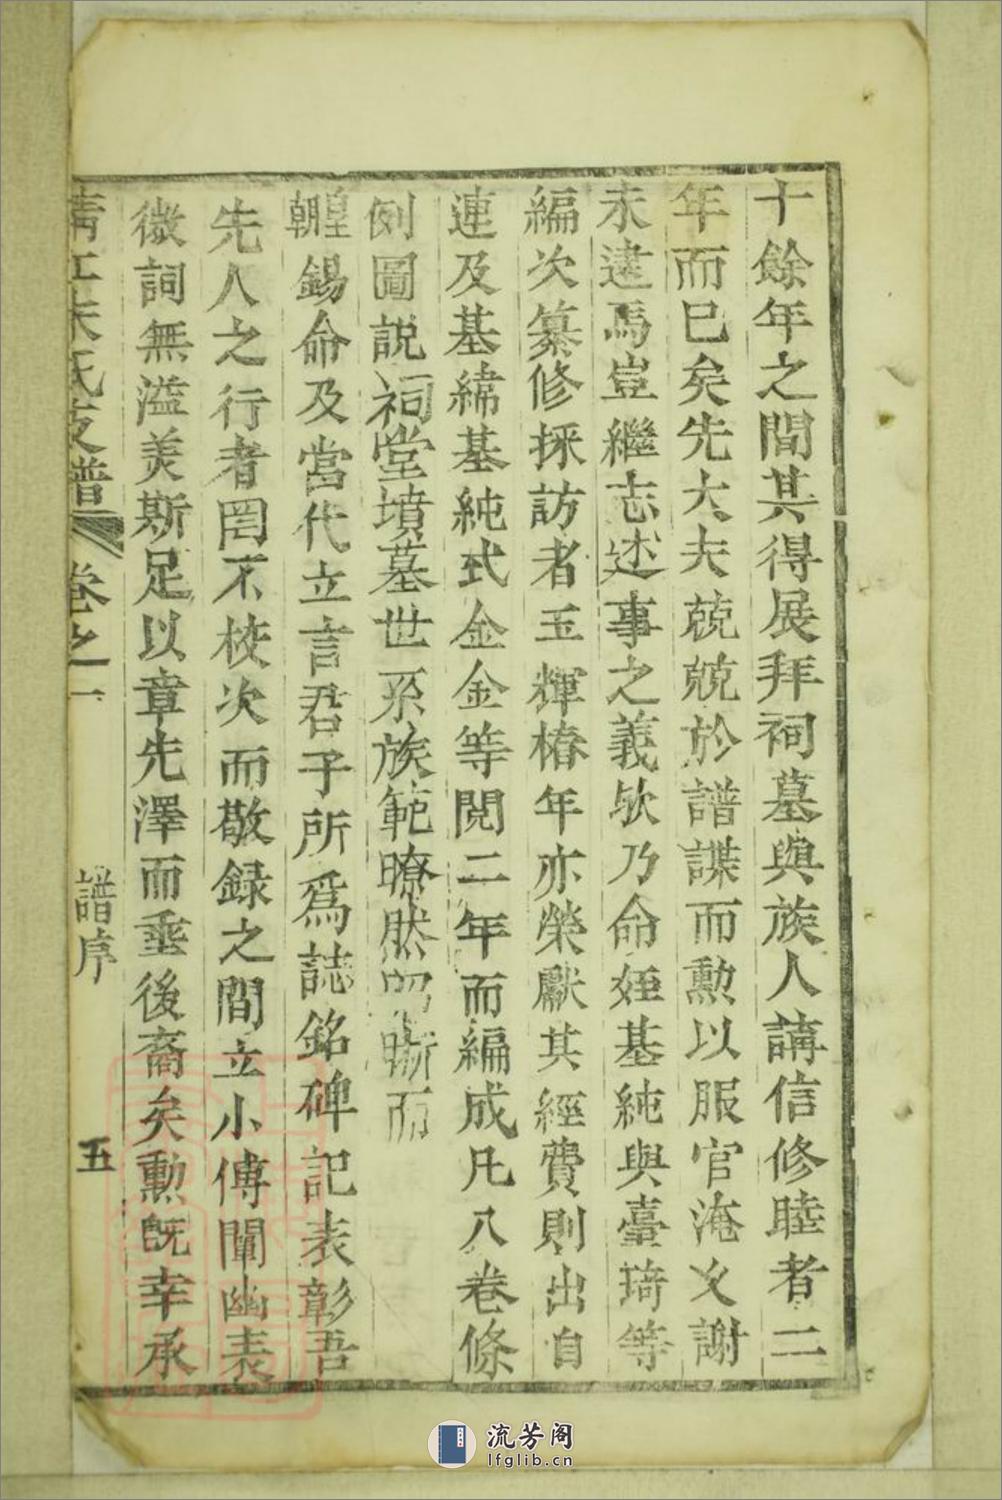 十餘年之間其得展拜祠墓與族人講信修睦者二
年而已矣先大夫兢兢於譜諜而勲以服官淹乂謝
未逮焉豈繼志述事之義欤乃命姪基純與臺琦等
編次纂修採訪者玉輝椿年亦榮獻其經費則出自
連及基緯基純式金金等閱二年而編成凡八卷條
例圖說祠堂墳墓世系族範瞭然昭晰而
皇朝錫命及當代立言君子所爲誌銘碑記表彰吾
先人之行者罔不校次而敬録之間立小傳闡幽表
微詞無溢羙斯足以章先澤而垂後裔矣勲旣幸承
清江朱氏支譜 卷之一 譜序 五
流芳阁
lfglib.cn